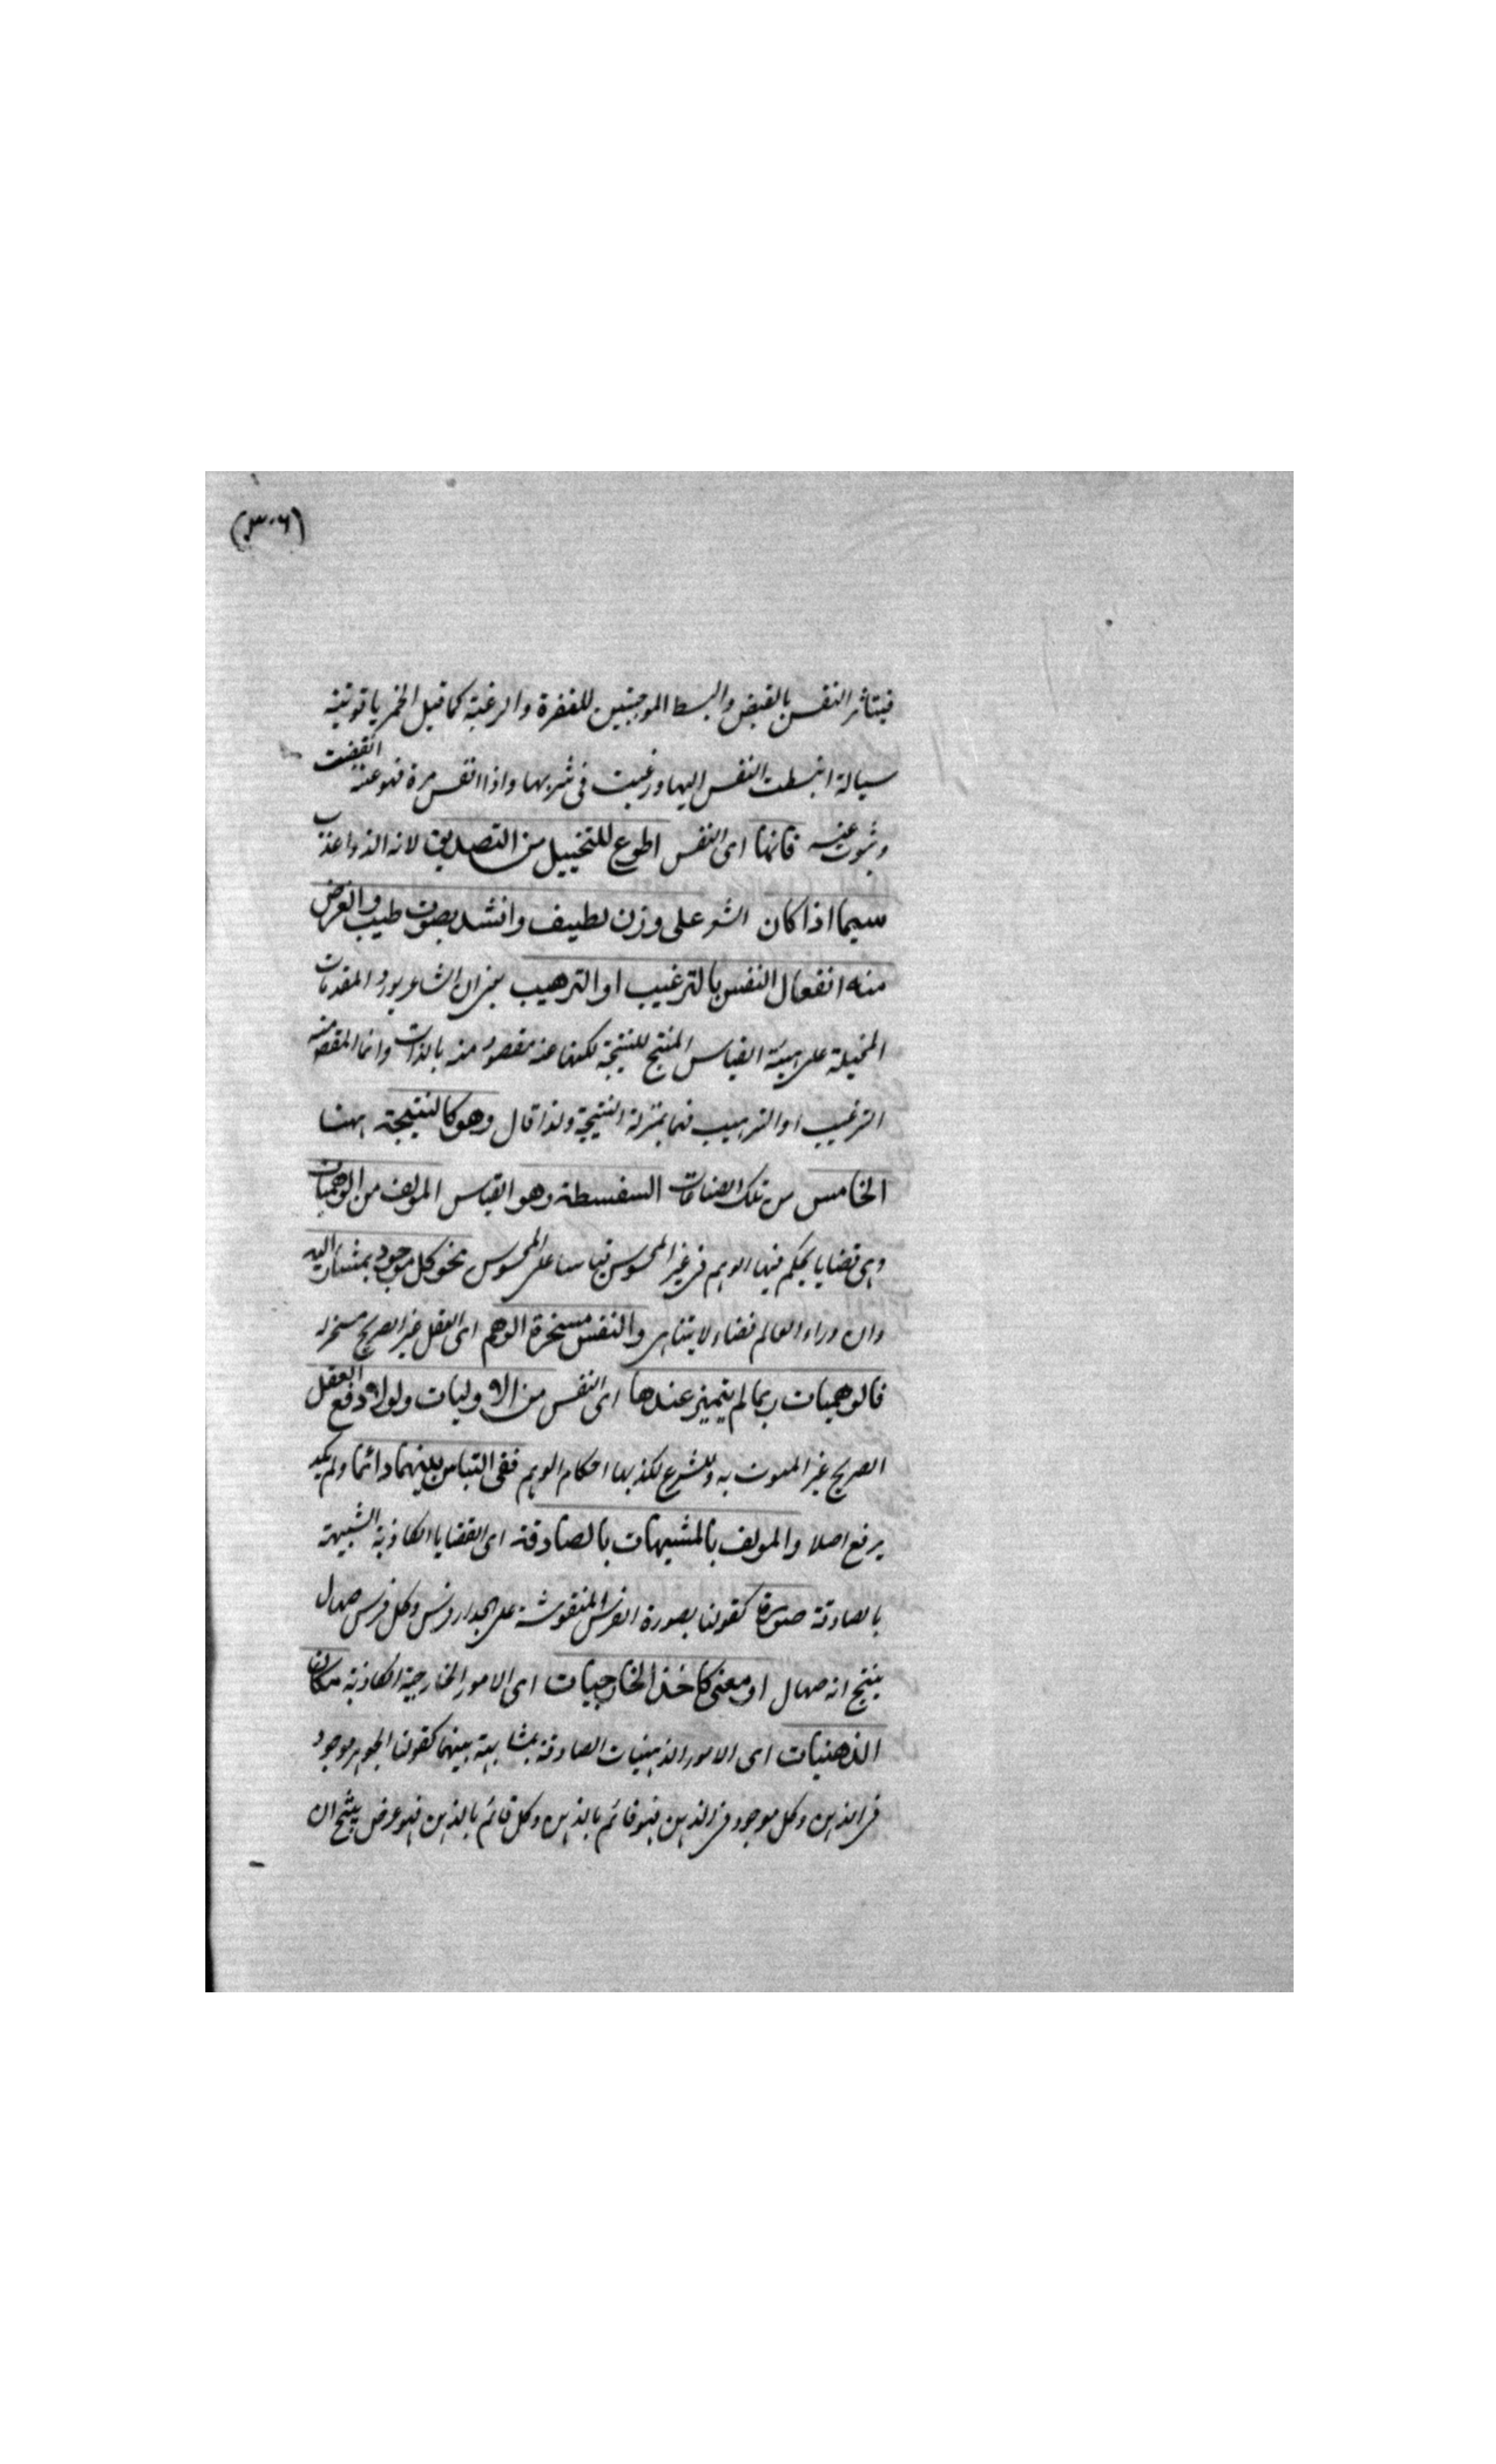 (٣٠٦)
فيتاثر النفس بالقبض والبسط الموجبين للنفرة والرغبة كما قيل الخمر ياقوتية
سيالة انبسطت النفس اليها ورغبت فى شربها واذا مرة انقبضت
عنه فانها اى النفس اطوع للتخييل من التصديق لانه الذ واعذب
سيما اذا كان الشعر على وزن لطيف وانشد بصوت طيب والغرض
منه انفعال النفس بالترغيب او الترهيب يعنى ان الشاعر يورد المقدمات
المخيلة على هيئة القياس المنتج للنتيجة لكنها غير مقصود منه بالذات وانما المقصود منه
الترغيب او الترهيب فهما بمنزلة النتيجة ولذا قال وهو كالنتيجة ههنا
الخامس من تلك الصناعات السفسطة وهو القياس المولف من الوهميات
وهى قضايا يحكم فيها الوهم فى غير المحسوس قياسا على المحسوس نحو كل موجود مشار اليه
وان وراء العالم فضاء لا يتناهى والنفس مسخرة الوهم اى العقل غير الصريح مسخر له
فالوهميات ربما لم يتميز عندها اى النفس من الاوليات ولولا دفع العقل
الصريح غير المشوب به والشرع لكذبها احكام الوهم فبقى التباس بينهما دائما ولم يكد
يرفع اصلا والمولف بالمشبهات بالصادقة اى القضايا الكاذبة الشبيهة
بالصادقة صورة كقولنا بصورة الفرس المنقوشة على الجدار فرس وكل فرس صهال
ينتج انه صهال او معنى كاخذ الخارجيات اى الامور الخارجية الكاذبة مكان
الذهنيات اى الامور الذهنيات الصادقة بمشابهة بينهما كقولنا الجوهر موجود
فى الذهن وكل موجود فى الذهن فهو قائم بالذهن وكل قائم بالذهن فهو عرض ينتج ان